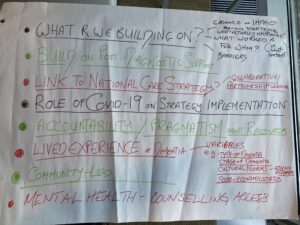 - WHAT R WE BUILDING ON?
EVIDENCE OF IMPACT
WHAT WORKED &
FOR WHOM?
BARRIERS
- BUILD ON POST-DIAGNOSTIC SUPPORT
- LINK TO NATIONAL CARE STRATEGY? COLLABORATIVE/
PARTNERSHIP
- ROLE OF COVID-19 ON STRATEGY IMPLEMENTATION
- ACCOUNTABILITY / PRAGMATISM AND RESOURCES
- LIVED EXPERIENCE OF DEMENTIA
VARIABLES
eg. TYPE OF DEMENTIA
STAGE OF DEMENTIA
CULTURAL NEEDS
SOCIO-ECONOMIC STATUS
- COMMUNITY-LED
- MENTAL HEALTH - COUNSELLING ACCESS